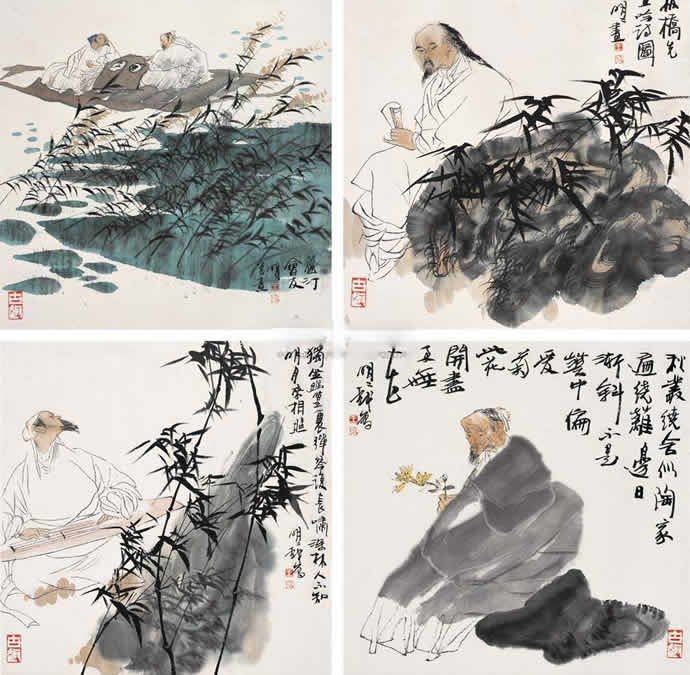 汀
會友
明
板橋先
生吟詩圖
明畫
獨坐幽篁裏彈琴復長嘯深林人不知
明月來相照
明
寫
秋叢繞舍似陶家
遍繞籬邊日
漸斜不是
花中偏
愛
菊
此花
開盡
更無
花
明
寫